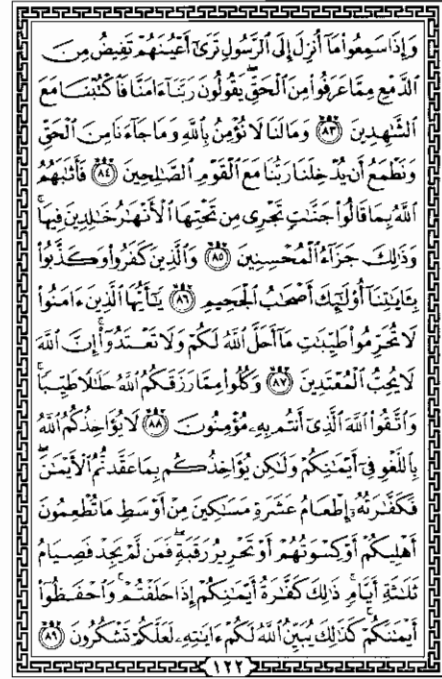 وَإِذَا سَمِعُوا۟ مَآ أُنزِلَ إِلَى ٱلرَّسُولِ تَرَىٰٓ أَعْيُنَهُمْ تَفِيضُ مِنَ
ٱلدَّمْعِ مِمَّا عَرَفُوا۟ مِنَ ٱلْحَقِّ ۖ يَقُولُونَ رَبَّنَآ ءَامَنَّا فَٱكْتُبْنَا مَعَ
ٱلشَّـٰهِدِينَ ٨٣ وَمَا لَنَا لَا نُؤْمِنُ بِٱللَّهِ وَمَا جَآءَنَا مِنَ ٱلْحَقِّ
وَنَطْمَعُ أَن يُدْخِلَنَا رَبُّنَا مَعَ ٱلْقَوْمِ ٱلصَّـٰلِحِينَ ٨٤ فَأَثَـٰبَهُمُ
ٱللَّهُ بِمَا قَالُوا۟ جَنَّـٰتٍ تَجْرِى مِن تَحْتِهَا ٱلْأَنْهَـٰرُ خَـٰلِدِينَ فِيهَا ۚ
وَذَٰلِكَ جَزَآءُ ٱلْمُحْسِنِينَ ٨٥ وَٱلَّذِينَ كَفَرُوا۟ وَكَذَّبُوا۟
بِـَٔايَـٰتِنَآ أُو۟لَـٰٓئِكَ أَصْحَـٰبُ ٱلْجَحِيمِ ٨٦ يَـٰٓأَيُّهَا ٱلَّذِينَ ءَامَنُوا۟
لَا تُحَرِّمُوا۟ طَيِّبَـٰتِ مَآ أَحَلَّ ٱللَّهُ لَكُمْ وَلَا تَعْتَدُوٓا۟ ۚ إِنَّ ٱللَّهَ
لَا يُحِبُّ ٱلْمُعْتَدِينَ ٨٧ وَكُلُوا۟ مِمَّا رَزَقَكُمُ ٱللَّهُ حَلَـٰلًا طَيِّبًا ۚ
وَٱتَّقُوا۟ ٱللَّهَ ٱلَّذِىٓ أَنتُم بِهِۦ مُؤْمِنُونَ ٨٨ لَا يُؤَاخِذُكُمُ ٱللَّهُ
بِٱللَّغْوِ فِىٓ أَيْمَـٰنِكُمْ وَلَـٰكِن يُؤَاخِذُكُم بِمَا عَقَّدتُّمُ ٱلْأَيْمَـٰنَ ۖ
فَكَفَّـٰرَتُهُۥٓ إِطْعَامُ عَشَرَةِ مَسَـٰكِينَ مِنْ أَوْسَطِ مَا تُطْعِمُونَ
أَهْلِيكُمْ أَوْ كِسْوَتُهُمْ أَوْ تَحْرِيرُ رَقَبَةٍ ۖ فَمَن لَّمْ يَجِدْ فَصِيَامُ
ثَلَـٰثَةِ أَيَّامٍ ۚ ذَٰلِكَ كَفَّـٰرَةُ أَيْمَـٰنِكُمْ إِذَا حَلَفْتُمْ ۚ وَٱحْفَظُوٓا۟
أَيْمَـٰنَكُمْ ۚ كَذَٰلِكَ يُبَيِّنُ ٱللَّهُ لَكُمْ ءَايَـٰتِهِۦ لَعَلَّكُمْ تَشْكُرُونَ ٨٩
١٢٢